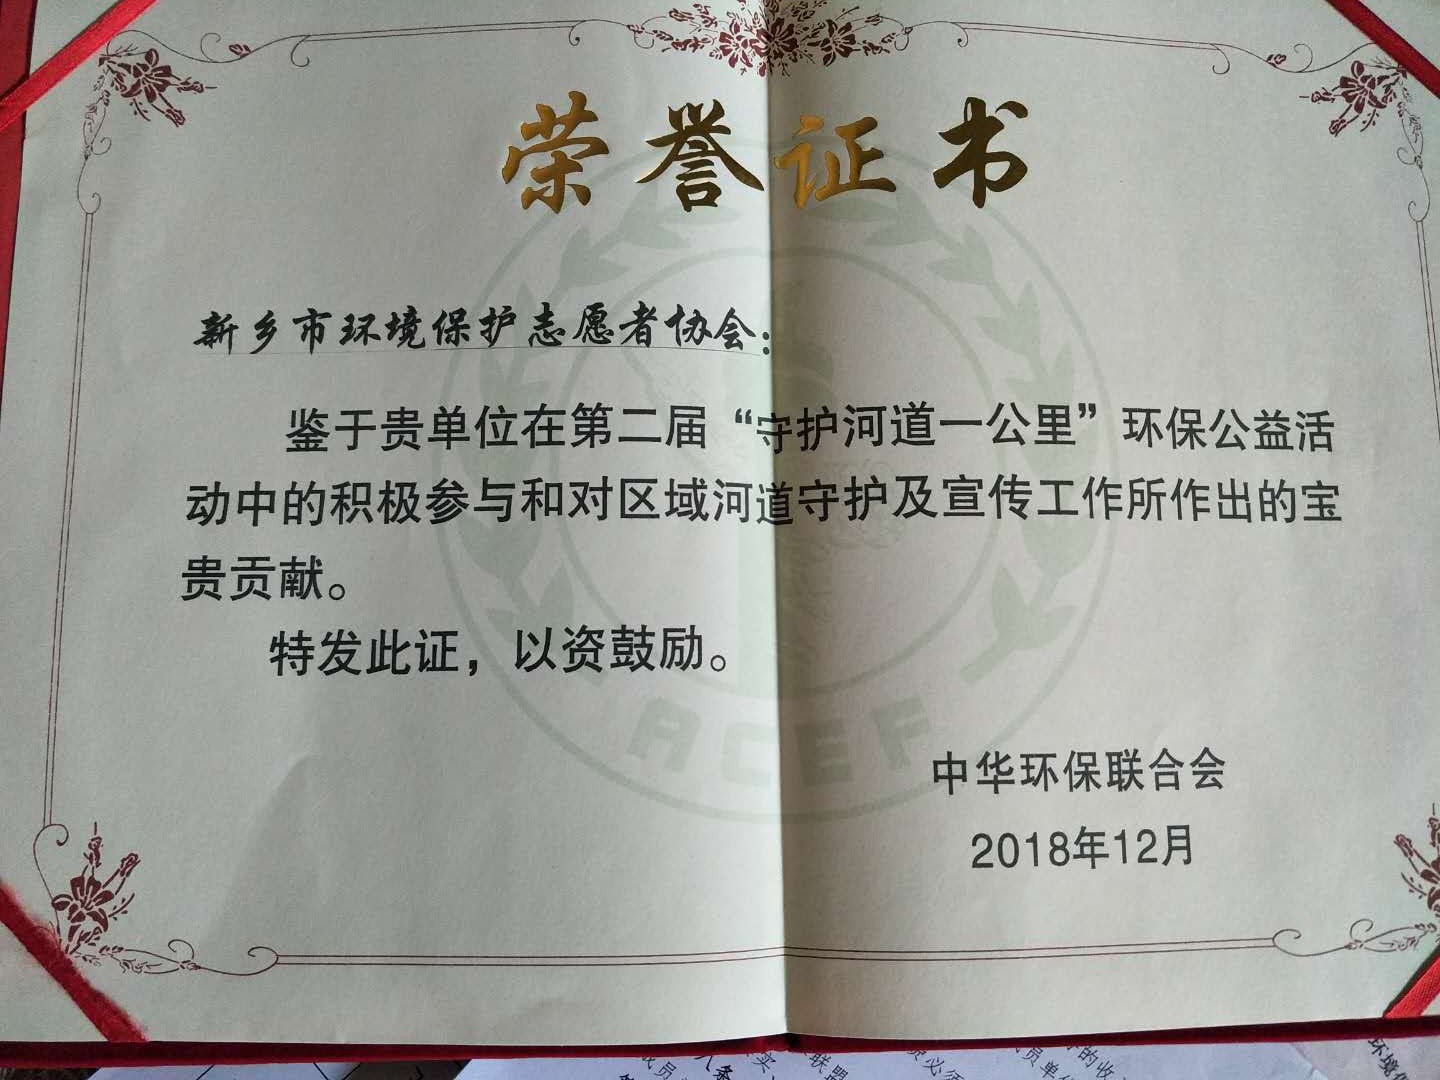 荣誉证书
新乡市环境保护志愿者协会：
鉴于贵单位在第二届“守护河道一公里”环保公益活
动中的积极参与和对区域河道守护及宣传工作所作出的宝
贵贡献。
特发此证，以资鼓励。
ACEF
中华环保联合会
2018年12月